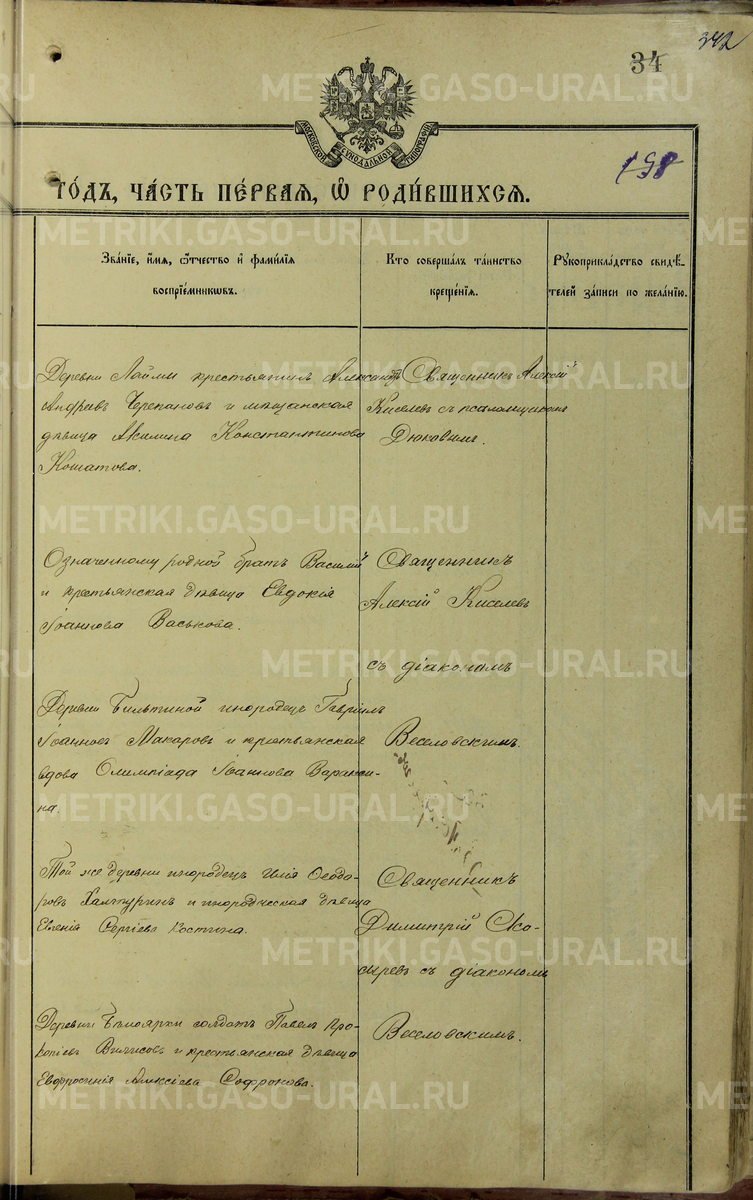 342
34
МОСКОВСКОЙ СѴНОДАЛЬНОЙ ТИПОГРАФІИ
198
ГО́ДЪ, ЧА́СТЬ ПЕ́РВАЯ, Ѡ РОДИ́ВШИХСЯ.
Зва́нїе, и́мя, о́тчество и҆ фами́лїя
воспрїе́мникѡвъ.
Кто̀ соверша́лъ та́инство
креще́нїя.
Рꙋкоприкла́дство свидѣ́-
телей за́писи по жела́нїю.
Деревни Лаймы крестьянинъ Александръ
Андреевъ Черепановъ и мѣщанская
дѣвица Акилина Константинова
Кошатова.
Священникъ Алексій
Киселевъ съ псаломщикомъ
Дюковымъ.
Означенному родной братъ Василій
и крестьянская дѣвица Евдокія
Іоаннова Васькова.
Священникъ
Алексій Киселевъ
съ діакономъ
Веселовскимъ.
Деревни Бильтиной инородецъ Гавріилъ
Іоанновъ Макаровъ и крестьянская
вдова Олимпіада Іоаннова Вараксина.
Той же деревни инородецъ Илія Ѳеодо-
ровъ Халтуринъ и инородческая дѣвица
Евгенія Сергіева Костина.
Священникъ
Димитрій Ско-
сыревъ съ діакономъ
Веселовскимъ.
Деревни солдатъ Павелъ Про-
копіевъ и крестьянская дѣвица
Евфросинія Алексіева Софронова.
METRIKI.GASO-URAL.RU